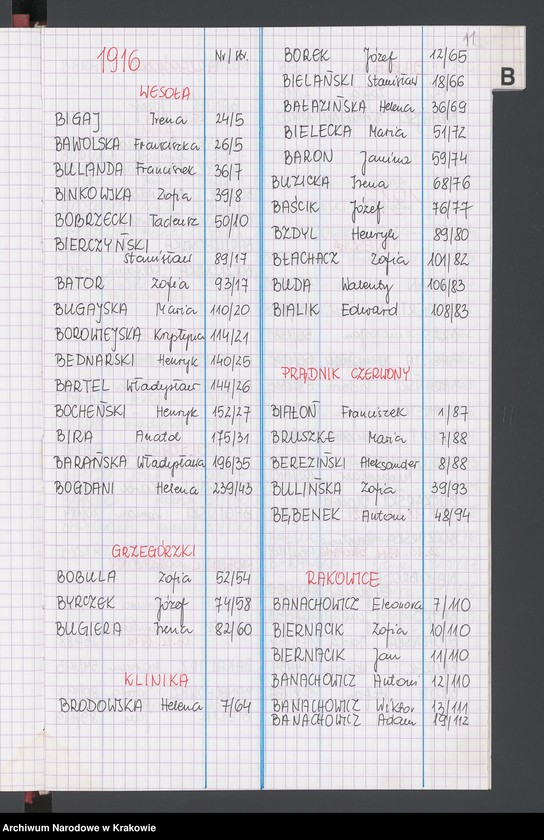 11
B
1916 Nr/str.
WESOŁA
BIGAJ Irena 24/5
BAWOLSKA Franciszka 26/5
BULANDA Franciszek 36/7
BINKOWSKA Zofia 39/8
BOBRZECKI Tadeusz 50/10
BIERCZYŃSKI
Stanisław 89/17
BATOR Zofia 93/17
BUGAJSKA Maria 110/20
BOROWIEJSKA Krystyna 114/21
BEDNARSKI Henryk 140/25
BARTEL Władysław 144/26
BOCHEŃSKI Henryk 152/27
BIRA Anatol 175/31
BARAŃSKA Władysława 196/35
BOGDANI Helena 239/43
GRZEGÓRZKI
BOBULA Zofia 52/54
BYRCZEK Józef 74/58
BUGIERA Irena 82/60
KLINIKA
BRODOWSKA Helena 7/64
BOREK Józef 12/65
BIELAŃSKI Stanisław 18/66
BAŁAZIŃSKA Helena 36/69
BIELECKA Maria 51/72
BARON Janina 59/74
BUZICKA Irena 68/76
BAŚCIK Józef 76/77
BZDYL Henryk 89/80
BŁACHACZ Zofia 101/82
BUDA Walenty 106/83
BIALIK Edward 108/83
PRĄDNIK CZERWONY
BIAŁOŃ Franciszek 1/87
BRUSZKE Maria 7/88
BEREZIŃSKI Aleksander 8/88
BULIŃSKA Zofia 39/93
BĘBENEK Antoni 48/94
RAKOWICE
BANACHOWICZ Eleonora 7/110
BIERNACIK Zofia 10/110
BIERNACIK Jan 11/110
BANACHOWICZ Antoni 12/110
BANACHOWICZ Wiktor 13/111
BANACHOWICZ Adam 19/112
Archiwum Narodowe w Krakowie